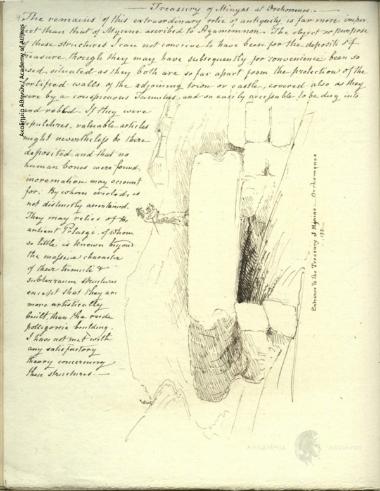 Treasury of Minyas at Orchomenus.
The remains of this extraordinary relic of antiquity is far more imper
fect than that of Mycene ascribed to Agamemnon. The object or purpose
of these structures I can not conceive to have been for the deposits of
treasure, though they may have subsequently for convenience been so
used, situated as they both are so far apart from the protection of the
fortified walls of the adjoining town or castle, covered also as they
were by a conspicuous Tumulus, and so easily accessible to be dug into
and robbed. If they were
sepulchres, valuable articles
might nevertheless be there
deposited, and that no
human bones were found,
incremation may account
for. By whom erected is
not distinctly ascertained.
They may relics of the
antient Pelasgi, of whom
so little is known beyond
the massive character
of their tumuli &
subterranean structures
except that they are
more artistically
built, than the rude
polygonia building.
I have not met with
any satisfactory
theory concerning
these structures
Entrance to the Treasury of Minyas Orchomenos
Ακαδημία Αθηνών / Academy of Athens
ΑΚΑΔΗΜΙΑ ΑΘΗΝΩΝ